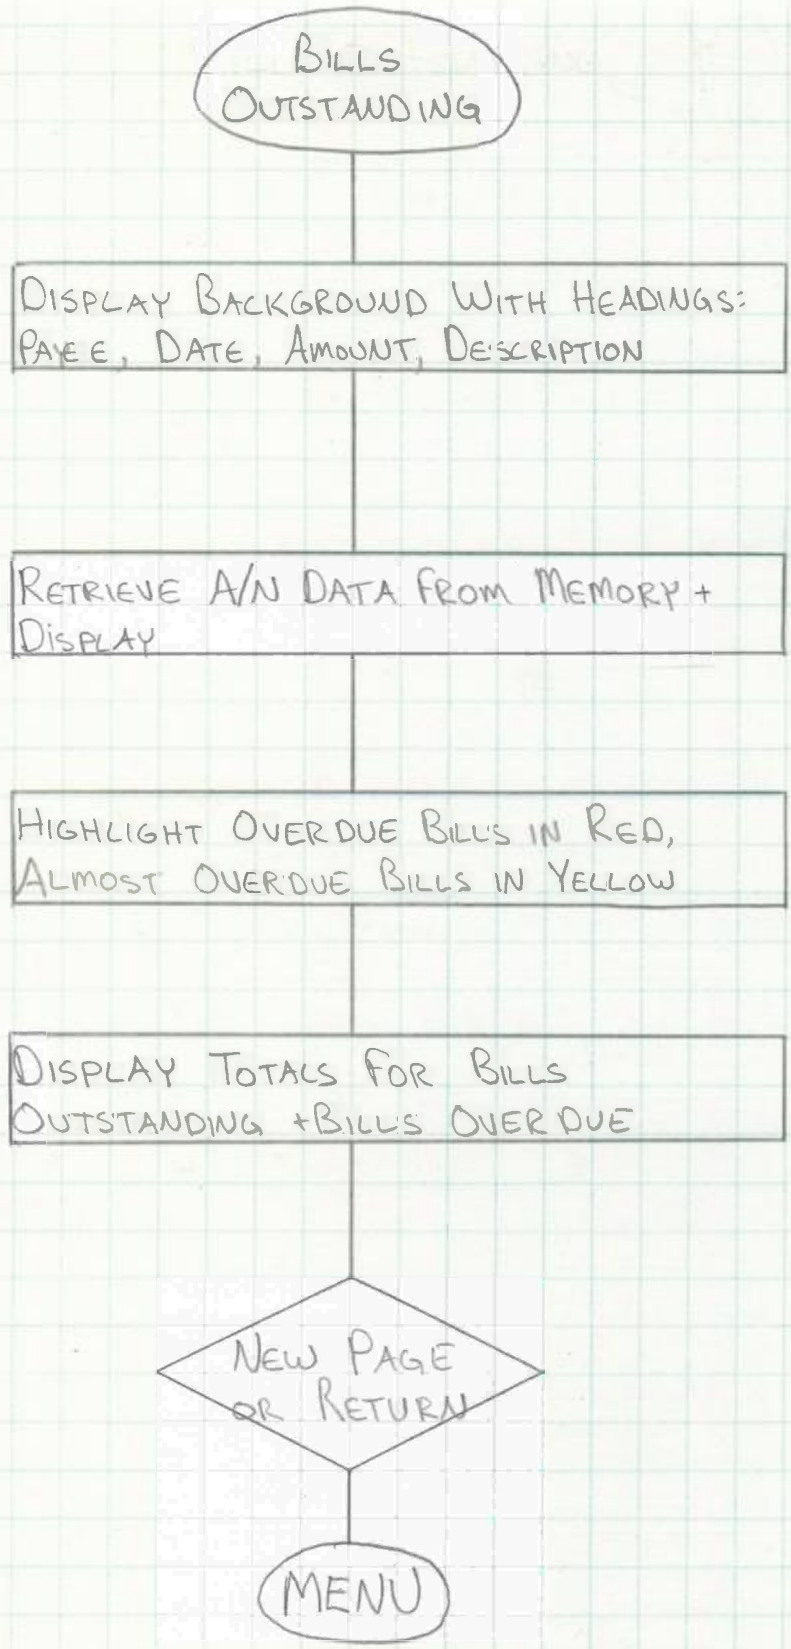 BILLS
OUTSTANDING
DISPLAY BACKGROUND WITH HEADINGS:
PAYEE, DATE, AMOUNT, DESCRIPTION
RETRIEVE A/N DATA FROM MEMORY +
DISPLAY
HIGHLIGHT OVERDUE BILLS IN RED,
ALMOST OVERDUE BILLS IN YELLOW
DISPLAY TOTALS FOR BILLS
OUTSTANDING + BILLS OVERDUE
NEW PAGE
OR RETURN
MENU